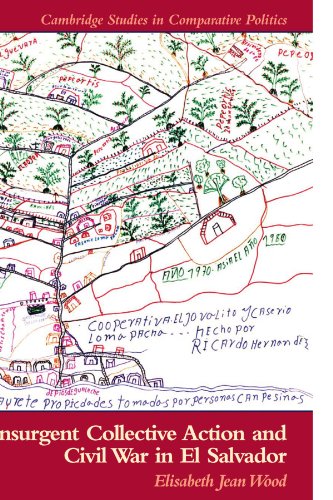 Cambridge Studies in Comparative Politics
AÑO 1970. ASIA EL AÑO 1980
COOPERATIVA. EL JOVOLITO Y CASERIO
LOMA PACHA.... HECHO POR
RICARDO HERNANDEZ
propiedades tomadas por personas campesinas
nsurgent Collective Action and
Civil War in El Salvador
Elisabeth Jean Wood